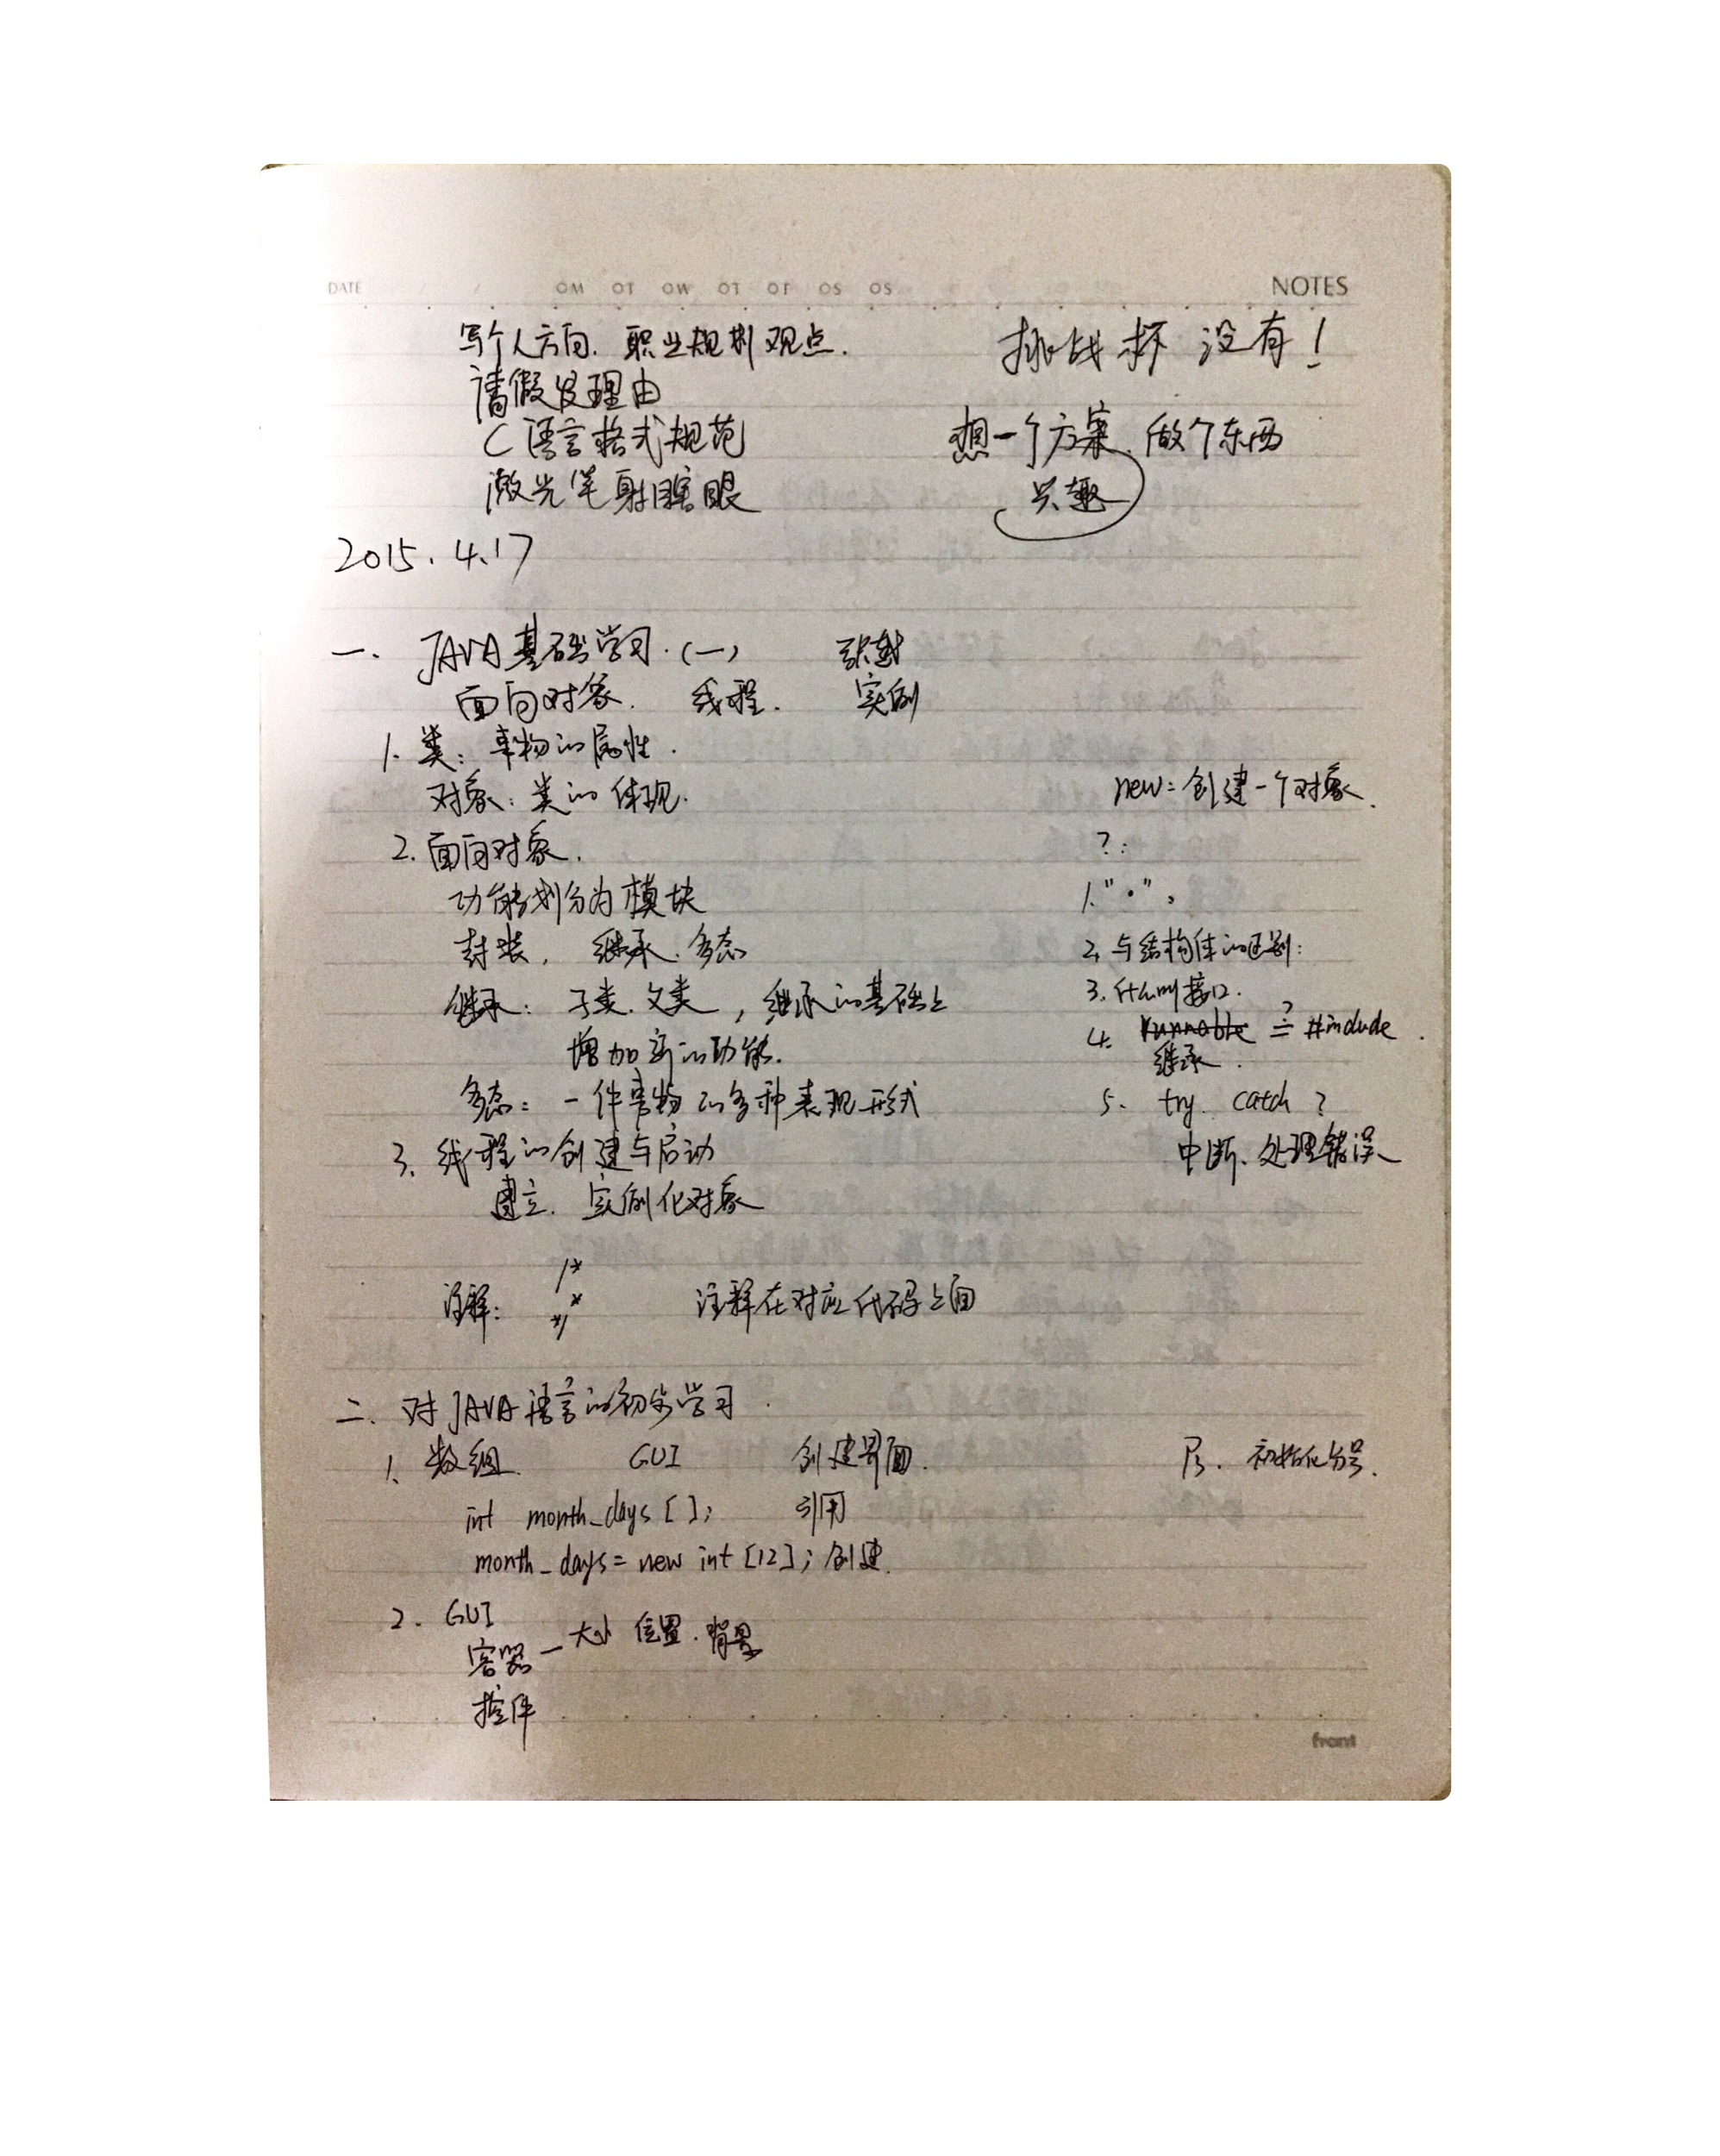 DATE / / OM OT OW OT OF OS OS NOTES
写个人方向、职业规划观点. 挑战杯 没有!
请假发理由
C语言格式规范 想一个方案.做个东西
激光笔射瞎眼 兴趣
2015.4.17
一、JAVA基础学习.(一)
面向对象. 线程. 实例
1.类:事物的属性.
对象:类的体现. new:创建一个对象.
2.面向对象. ?:
功能划分为模块 1."·"。
封装, 继承.多态 2.与结构体的区别:
继承: 子类.父类,继承的基础上 3.什么叫接口.
增加新的功能. 4. runnable ?= #include.
继承.
多态:一件事物的多种表现形式 5. try. catch ?
3.线程的创建与启动 中断、处理错误
建立. 实例化对象
注释: /* * */ 注释在对应代码上面
二、对JAVA语言的初步学习.
1.数组. GUI 创建界面. 初始化分号.
int month_days []; 引用
month_days = new int [12]; 创建.
2. GUI
容器—大小 位置.背景
控件
front